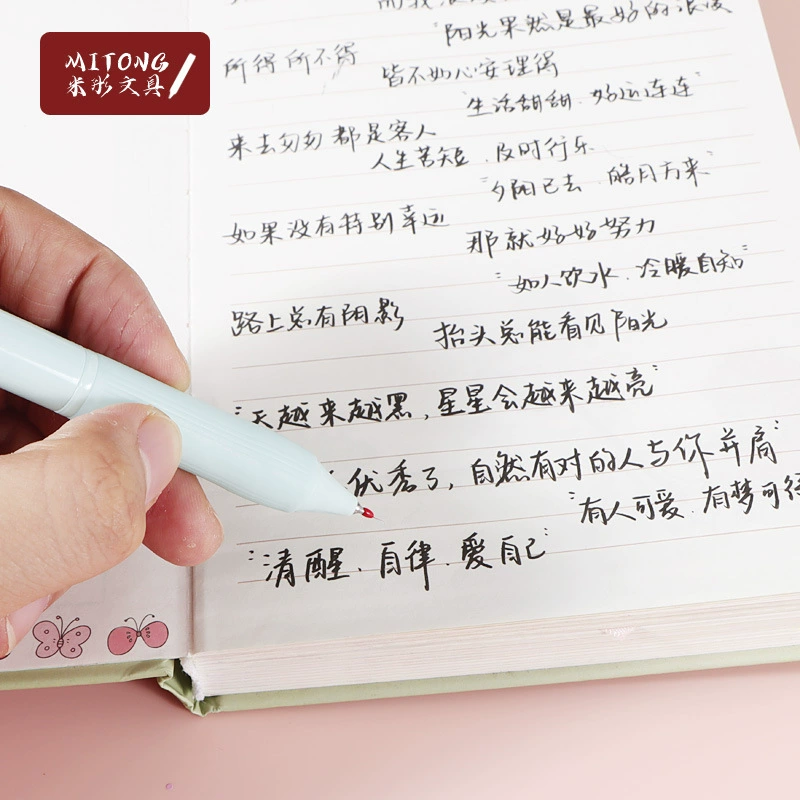 MITONG
米彤文具
"阳光果然是最好的浪漫
所得所不得
皆不如心安理得
"生活甜甜.好运连连"
来去匆匆都是客人
人生苦短.及时行乐
"夕阳已去.皓月方来"
如果没有特别幸运
那就好好努力
"如人饮水.冷暖自知"
路上总有阴影
抬头总能看见阳光
"天越来越黑,星星会越来越亮"
优秀了,自然有对的人与你并肩"
"有人可爱.有梦可
"清醒.自律.爱自己"